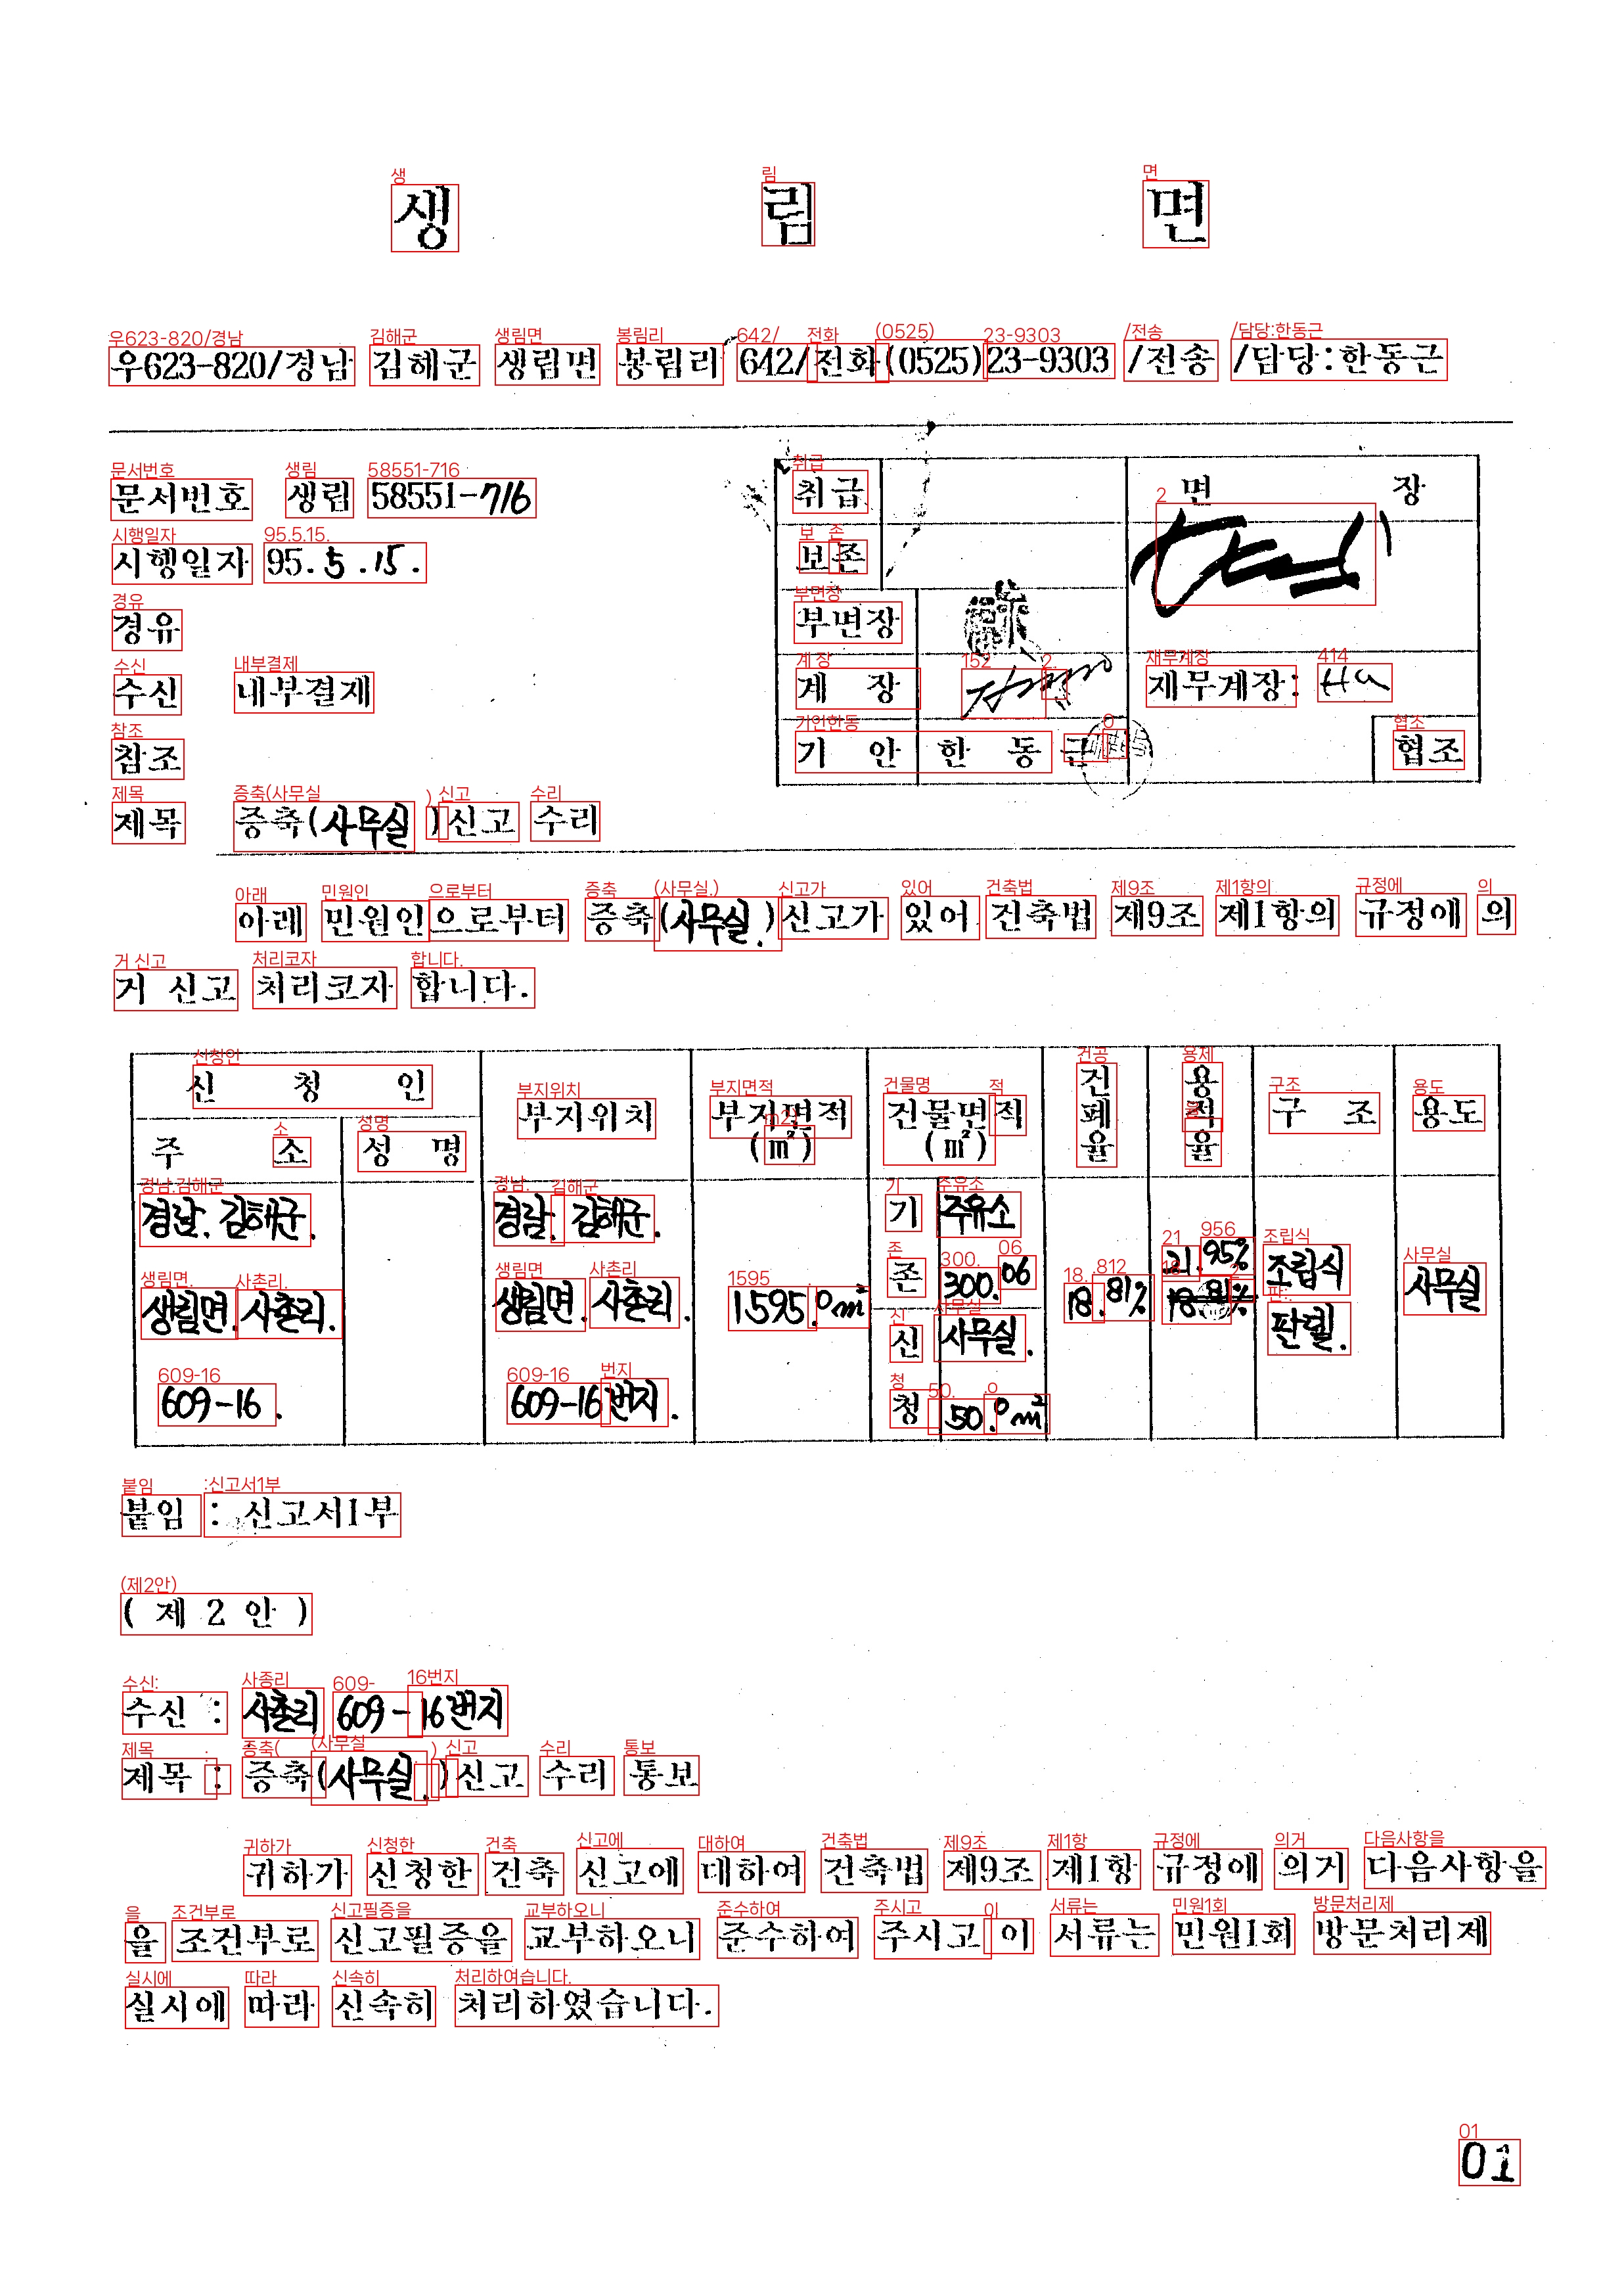 생 림 면
우623-820/경남 김해군 생림면 봉림리 642/전화(0525)23-9303 /전송 /담당:한동근
문서번호 생림 58551-716
시행일자 95.5.15.
경유
수신 내부결재
참조
제목 증축(사무실 )신고 수리
취급
보존
면 장
부면장
계 장
재무계장:
기 안 한 동 근
협조
아래 민원인으로부터 증축(사무실.)신고가 있어 건축법 제9조 제1항의 규정에 의
거 신고 처리코자 합니다.
신 청 인 부지위치 부지면적(㎡) 건물면적(㎡) 건폐율 용적율 구 조 용도
주 소 성 명
경남. 김해군. 생림면. 사촌리. 609-16.
경남. 김해군. 생림면. 사촌리. 609-16번지.
1595.0㎡
기존 주유소 300.06
신청 사무실. 50.0㎡
18.81%
21.95%
조립식 판넬.
사무실
붙임 : 신고서1부
( 제 2 안 )
수신 : 사촌리 609-16번지
제목 : 증축(사무실.)신고 수리 통보
귀하가 신청한 건축 신고에 대하여 건축법 제9조 제1항 규정에 의거 다음사항을
을 조건부로 신고필증을 교부하오니 준수하여 주시고 이 서류는 민원1회 방문처리제
실시에 따라 신속히 처리하였습니다.
01